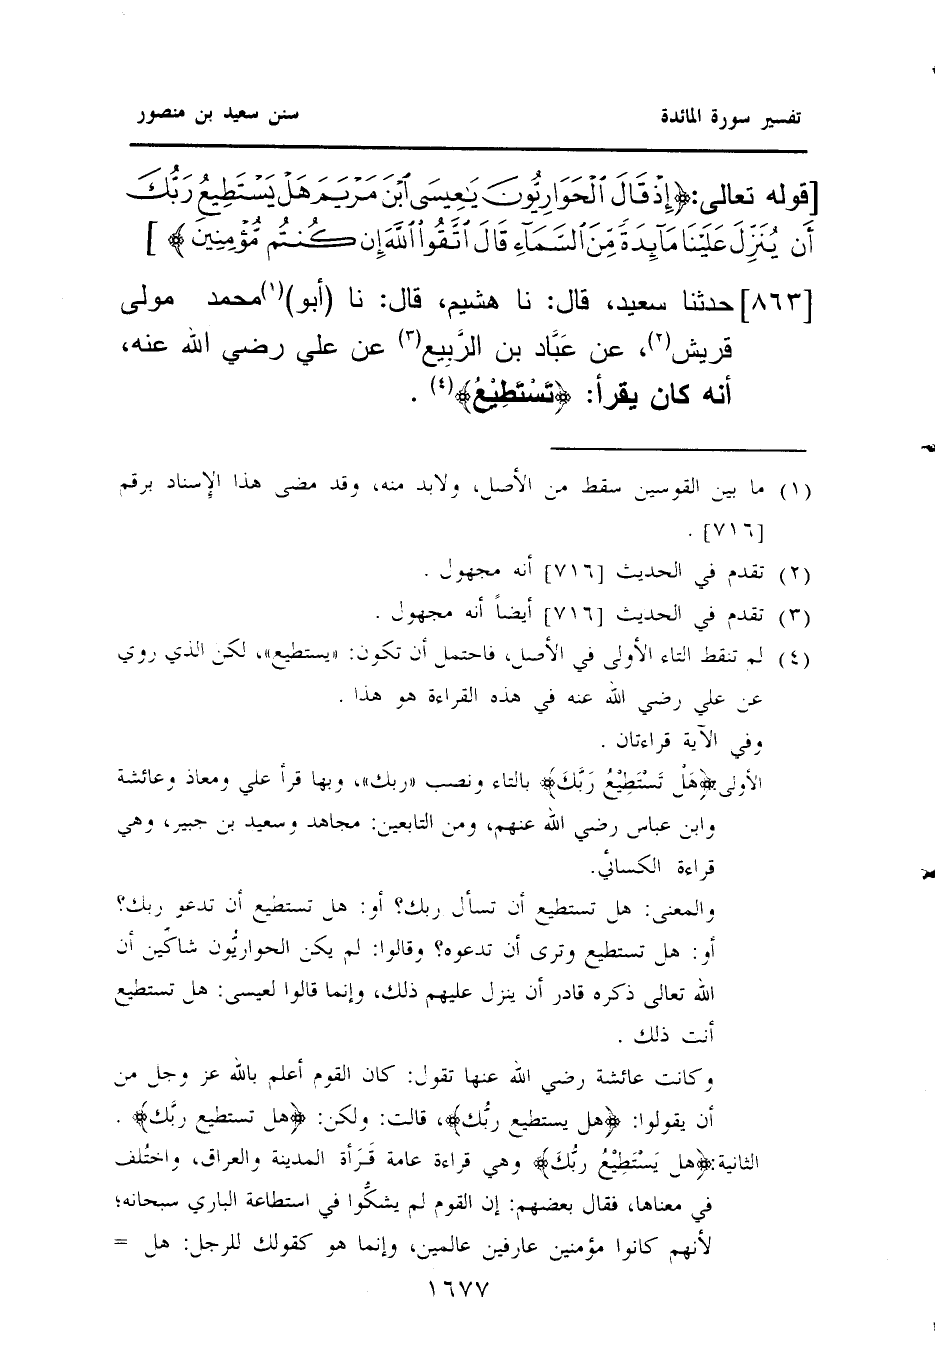 تفسير سورة المائدة سنن سعيد بن منصور
[قوله تعالى: ﴿إِذْ قَالَ ٱلْحَوَارِيُّونَ يَٰعِيسَى ٱبْنَ مَرْيَمَ هَلْ يَسْتَطِيعُ رَبُّكَ
أَن يُنَزِّلَ عَلَيْنَا مَآئِدَةً مِّنَ ٱلسَّمَآءِ قَالَ ٱتَّقُوا۟ ٱللَّهَ إِن كُنتُم مُّؤْمِنِينَ﴾]
[٨٦٣] حدثنا سعيد، قال: نا هشيم، قال: نا (أبو)(١) محمد مولى
قريش(٢)، عن عَبَّاد بن الرَّبِيع(٣) عن علي رضي الله عنه،
أنه كان يقرأ: ﴿تَسْتَطِيْعُ﴾(٤) .
(١) ما بين القوسين سقط من الأصل، ولابد منه، وقد مضى هذا الإسناد برقم
[٧١٦] .
(٢) تقدم في الحديث [٧١٦] أنه مجهول .
(٣) تقدم في الحديث [٧١٦] أيضاً أنه مجهول .
(٤) لم تنقط التاء الأولى في الأصل، فاحتمل أن تكون: «يستطيع»، لكن الذي روي
عن علي رضي الله عنه في هذه القراءة هو هذا .
وفي الآية قراءتان .
الأولى ﴿هَلْ تَسْتَطِيْعُ رَبَّكَ﴾ بالتاء ونصب «ربك»، وبها قرأ علي ومعاذ وعائشة
وابن عباس رضي الله عنهم، ومن التابعين: مجاهد وسعيد بن جبير، وهي
قراءة الكسائي.
والمعنى: هل تستطيع أن تسأل ربك؟ أو: هل تستطيع أن تدعو ربك؟
أو: هل تستطيع وترى أن تدعوه؟ وقالوا: لم يكن الحواريُّون شاكّين أن
الله تعالى ذكره قادر أن ينزل عليهم ذلك، وإنما قالوا لعيسى: هل تستطيع
أنت ذلك .
وكانت عائشة رضي الله عنها تقول: كان القوم أعلم بالله عز وجل من
أن يقولوا: ﴿هل يستطيع ربُّك﴾، قالت: ولكن: ﴿هل تستطيع ربَّك﴾ .
الثانية: ﴿هل يَسْتَطِيْعُ ربُّكَ﴾ وهي قراءة عامة قَرَأة المدينة والعراق، واختُلف
في معناها، فقال بعضهم: إن القوم لم يشكُّوا في استطاعة الباري سبحانه؛
لأنهم كانوا مؤمنين عارفين عالمين، وإنما هو كقولك للرجل: هل =
١٦٧٧